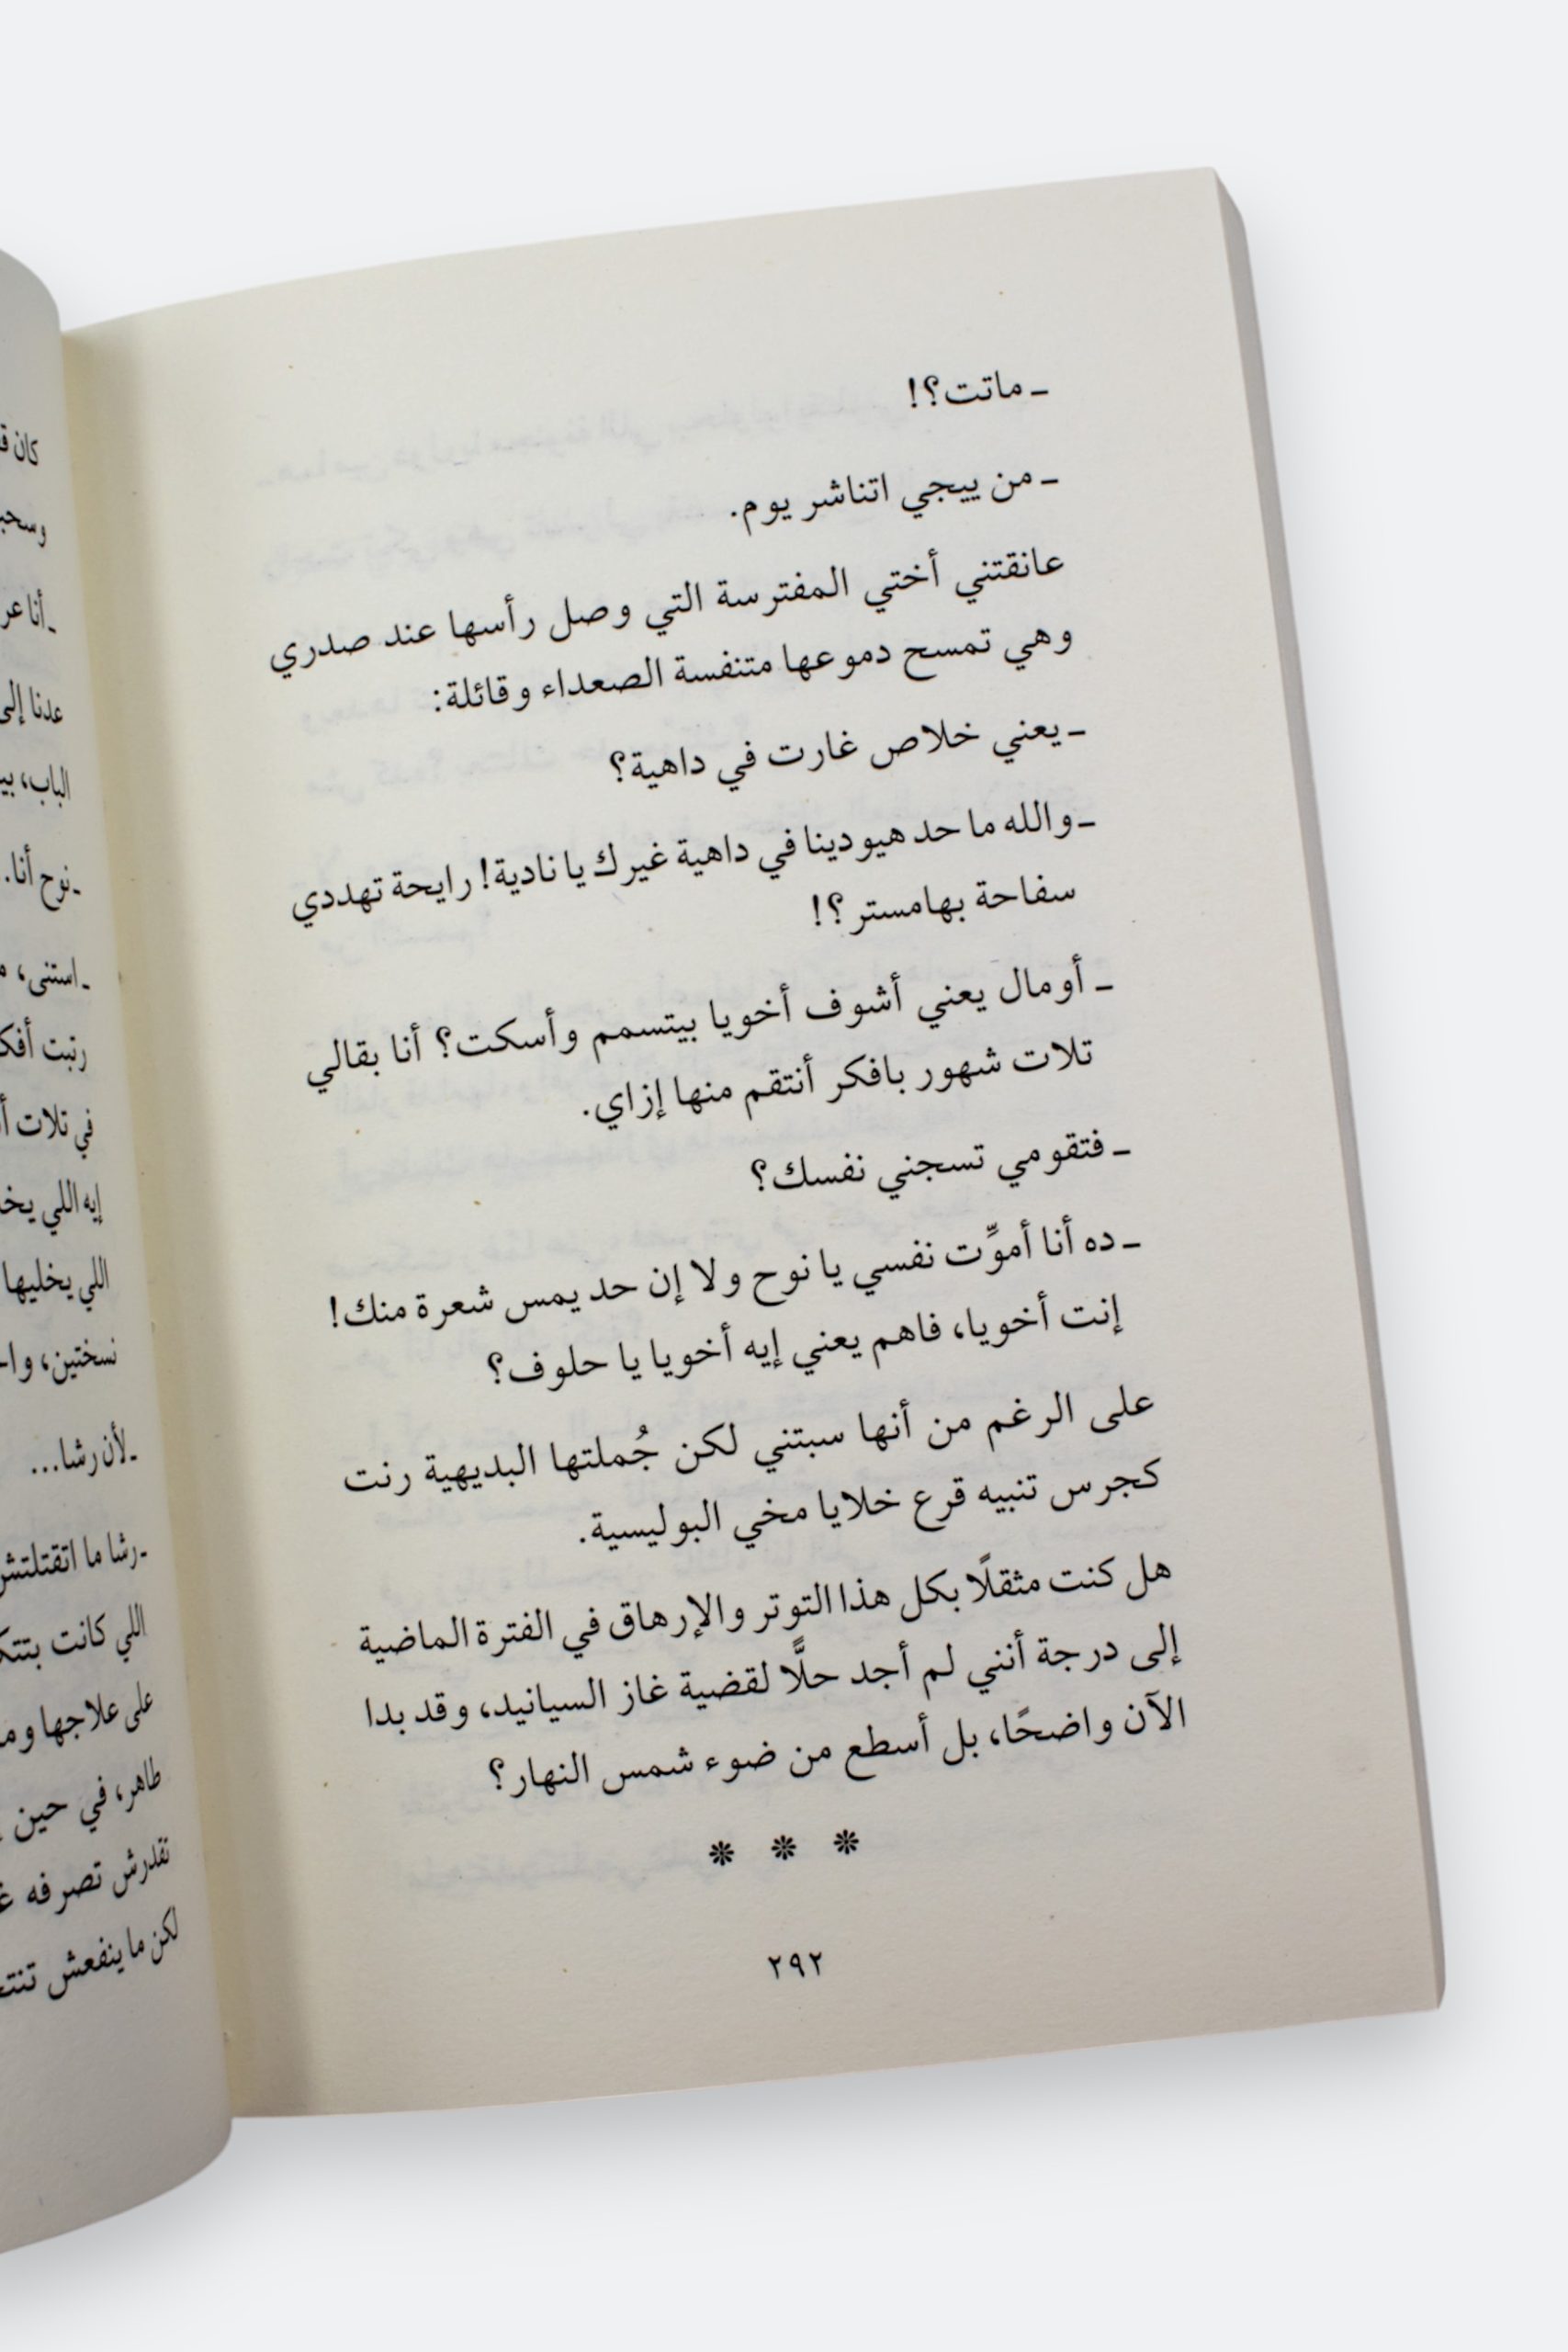 ـ ماتت؟!
ـ من ييجي اتناشر يوم.
عانقتني أختي المفترسة التي وصل رأسها عند صدري
وهي تمسح دموعها متنفسة الصعداء وقائلة:
ـ يعني خلاص غارت في داهية؟
ـ والله ما حد هيودينا في داهية غيرك يا نادية! رايحة تهددي
سفاحة بهامستر؟!
ـ أومال يعني أشوف أخويا بيتسمم وأسكت؟ أنا بقالي
تلات شهور بافكر أنتقم منها إزاي.
ـ فتقومي تسجني نفسك؟
ـ ده أنا أموِّت نفسي يا نوح ولا إن حد يمس شعرة منك!
إنت أخويا، فاهم يعني إيه أخويا يا حلوف؟
على الرغم من أنها سبتني لكن جُملتها البديهية رنت
كجرس تنبيه قرع خلايا مخي البوليسية.
هل كنت مثقلًا بكل هذا التوتر والإرهاق في الفترة الماضية
إلى درجة أنني لم أجد حلًّا لقضية غاز السيانيد، وقد بدا
الآن واضحًا، بل أسطع من ضوء شمس النهار؟
* * *
٢٩٢
كان
ـ أنا
عدنا إلى
الباب،
ـ نوح أنا.
ـ استنى،
رتبت
في تلات
إيه اللي
اللي يخليها
نسختين،
ـ لأن رشا...
ـ رشا ما اتقتلتش
اللي كانت
على علاجها
طاهر، في حين
تقدرش تصرفه
لكن ما ينفعش